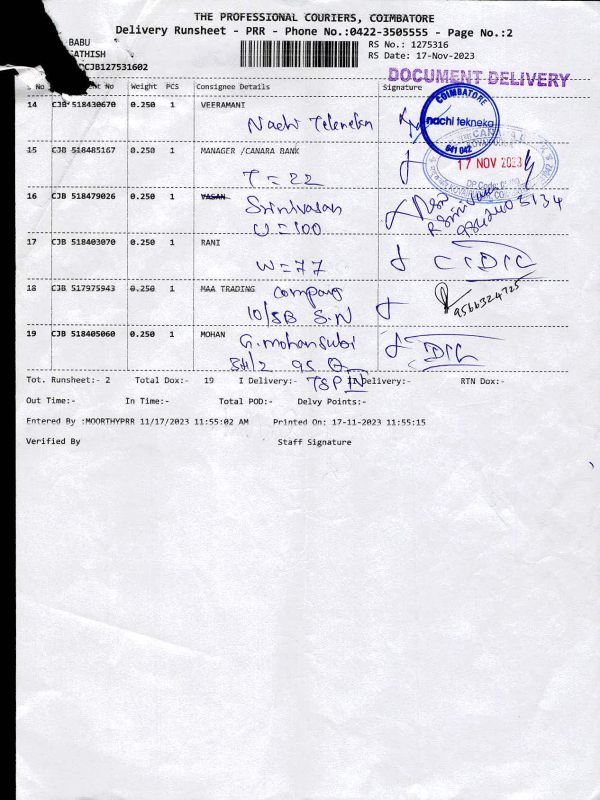 THE PROFESSIONAL COURIERS, COIMBATORE
Delivery Runsheet - PRR - Phone No.:0422-3505555 - Page No.:2
BABU
SATHISH
CCJB127531602
RS No.: 1275316
RS Date: 17-Nov-2023
DOCUMENT DELIVERY
S No No Weight PCS Consignee Details Signature
14 CJB 518430670 0.250 1 VEERAMANI
Nachi Tekneka
COIMBATORE
nachi tekneka
641 042
15 CJB 518485167 0.250 1 MANAGER /CANARA BANK
T = 22
17 NOV 2023
16 CJB 518479026 0.250 1 VASAN
Srinivasan
U = 100
17 CJB 518403070 0.250 1 RANI
W = 77
18 CJB 517975943 0.250 1 MAA TRADING company
10/5B S.N
9566324725
19 CJB 518405060 0.250 1 MOHAN
G.mohansubi
Tot. Runsheet:- 2 Total Dox:- 19 I Delivery:- Delivery:- RTN Dox:-
Out Time:- In Time:- Total POD:- Delvy Points:-
Entered By :MOORTHYPRR 11/17/2023 11:55:02 AM Printed On: 17-11-2023 11:55:15
Verified By Staff Signature